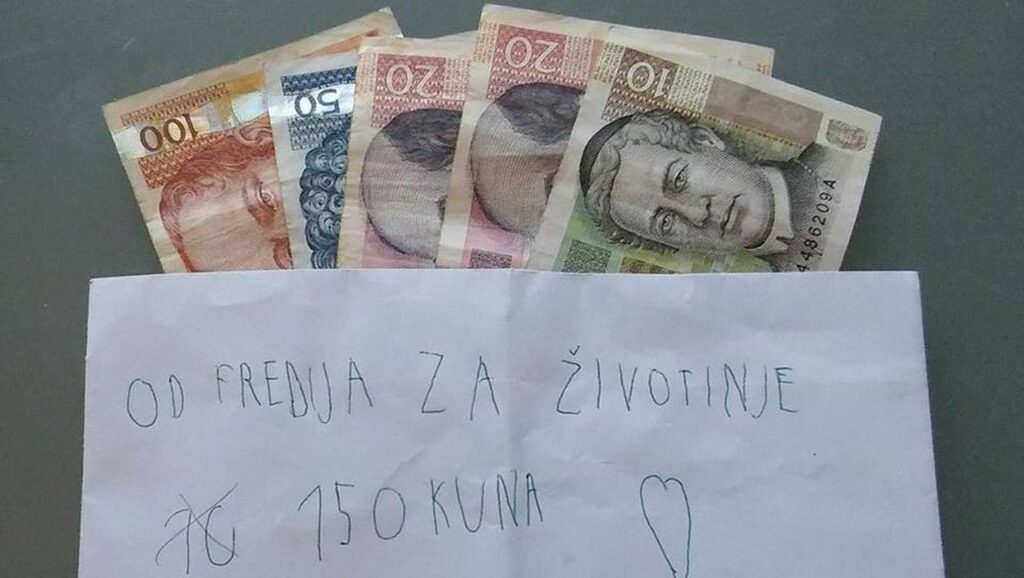 100
50
20
20
10
44862094
OD FREDIJA ZA ŽIVOTINJE
150 KUNA